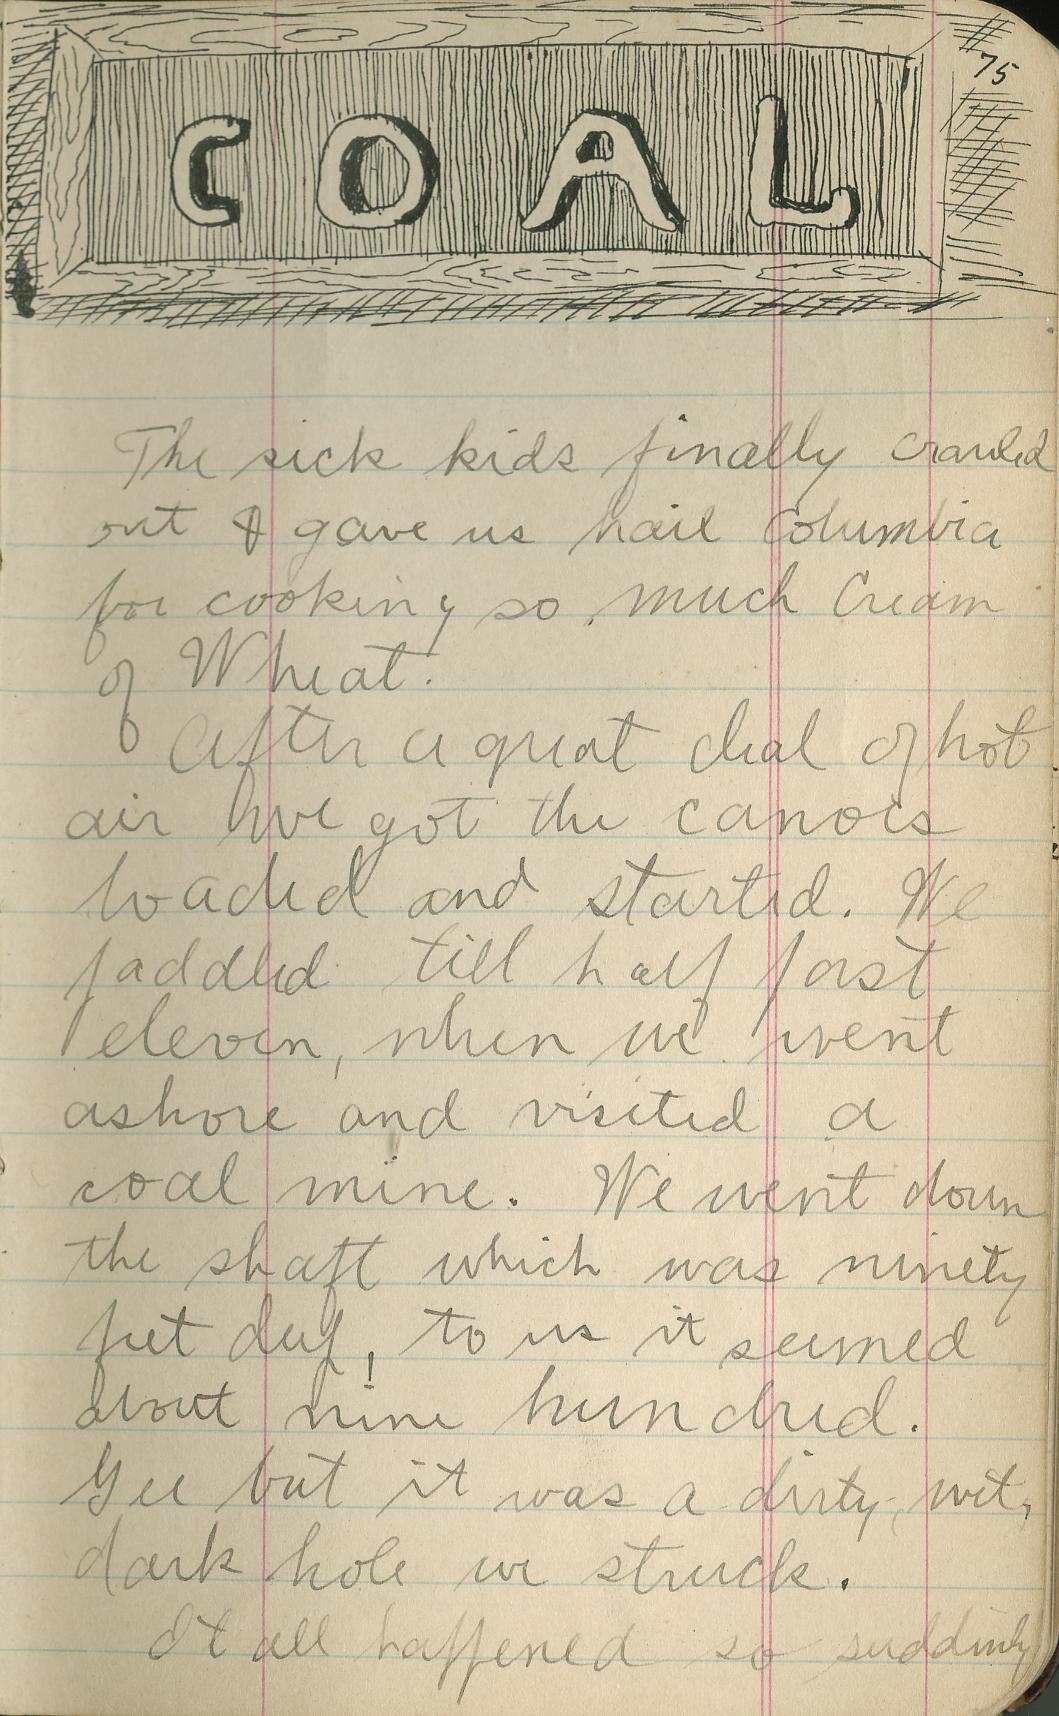 75
COAL
The sick kids finally crawled
out & gave us hail Columbia
for cooking so much Cream
of Wheat.
After a great deal of hot
air we got the canoes
loaded and started. We
paddled till half past
eleven, when we went
ashore and visited a
coal mine. We went down
the shaft which was ninety
feet deep, to us it seemed
about nine hundred.
Gee but it was a dirty, wet,
dark hole we struck.
It all happened so suddenly